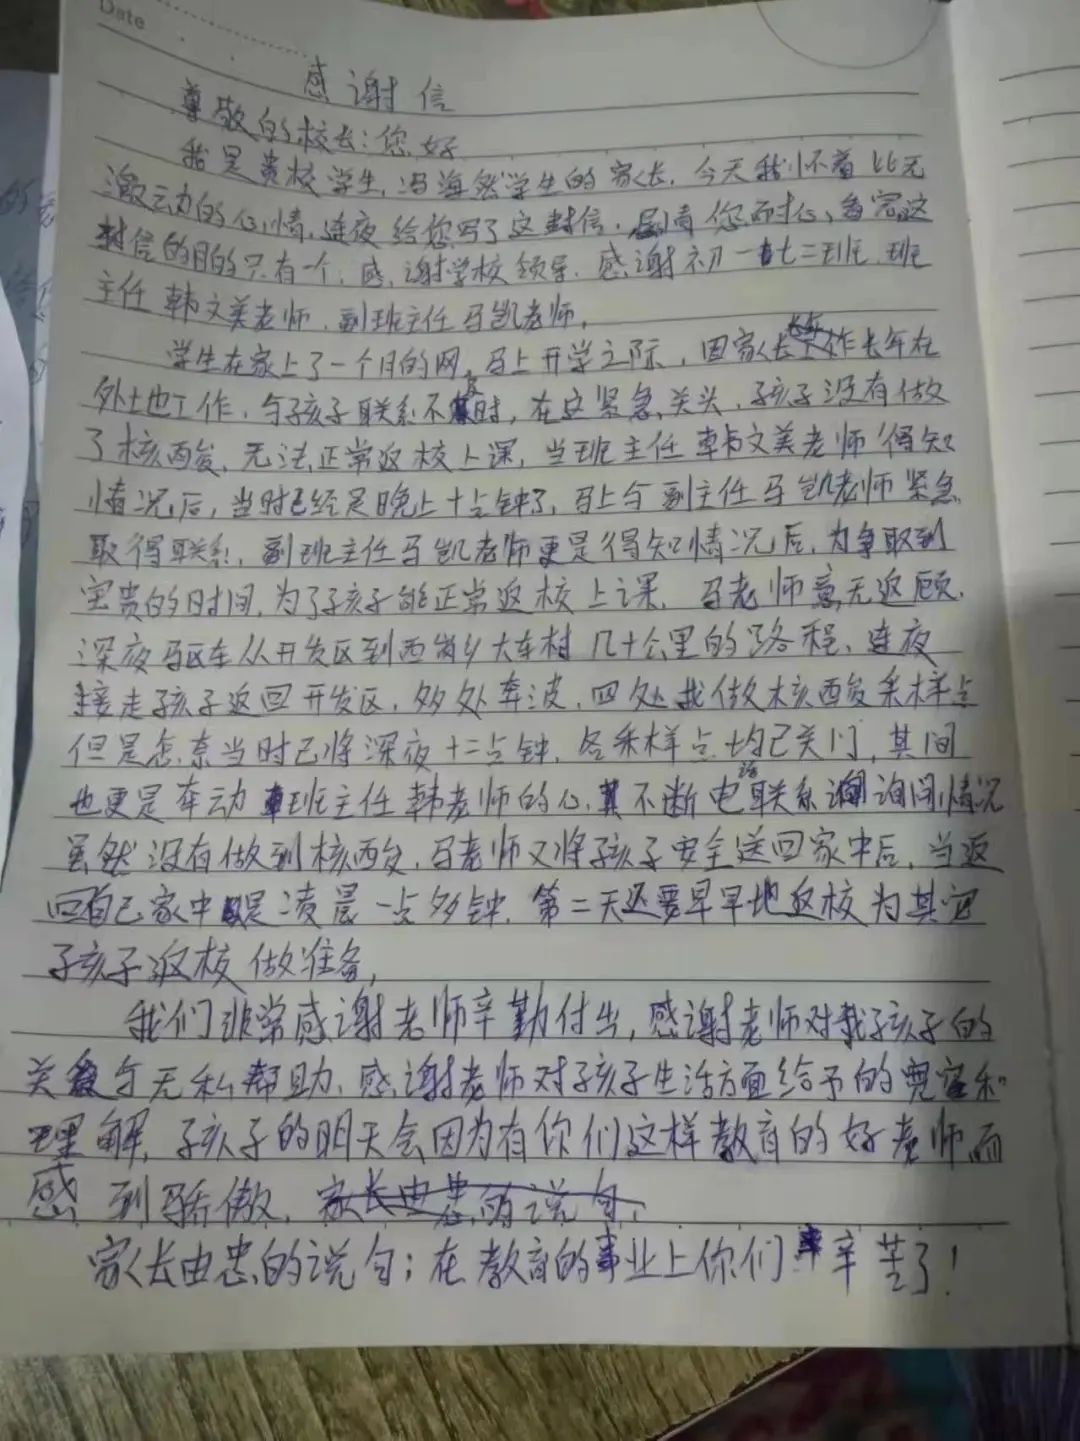 Date
感谢信
尊敬的校长:您好
我是贵校学生,冯海然学生的家长,今天我怀着比无
激动的心情,连夜给您写了这封信,
封信的目的只有一个,感谢学校领导,感谢初一七二班,班
主任韩文美老师,副班主任马凯老师,
学生在家上了一个月的网,马上开学之际,因家长长年在
外土也工作,与孩子联系不及时,在这紧急关头,孩子没有做
了核酸,无法正常返校上课,当班主任韩文美老师得知
情况后,当时已经是晚上十点钟了,马上与副主任马凯老师紧急
取得联系,副班主任马凯老师更是得知情况后,为争取到
宝贵的时间,为了孩子能正常返校上课,马老师意无返顾,
深夜驱车从开发区到西岗乡大车村几十公里的路程,连夜
接走孩子返回开发区,多处奔波,四处找做核酸采样点
但是怎奈当时已将深夜十二点钟,各采样点均已关门,其间
也更是牵动班主任韩老师的心,不断电话联系询问情况
虽然没有做到核酸,马老师又将孩子安全送回家中后,当返
回自己家中是凌晨一点多钟,第二天还要早早地返校为其它
孩子返校做准备,
我们非常感谢老师辛勤付出,感谢老师对我孩子的
关爱与无私帮助,感谢老师对孩子生活方面给予的宽容和
理解,孩子的明天会因为有你们这样教育的好老师而
感到骄傲,家长由忠的说句,
家长由忠的说句:在教育的事业上你们辛苦了!